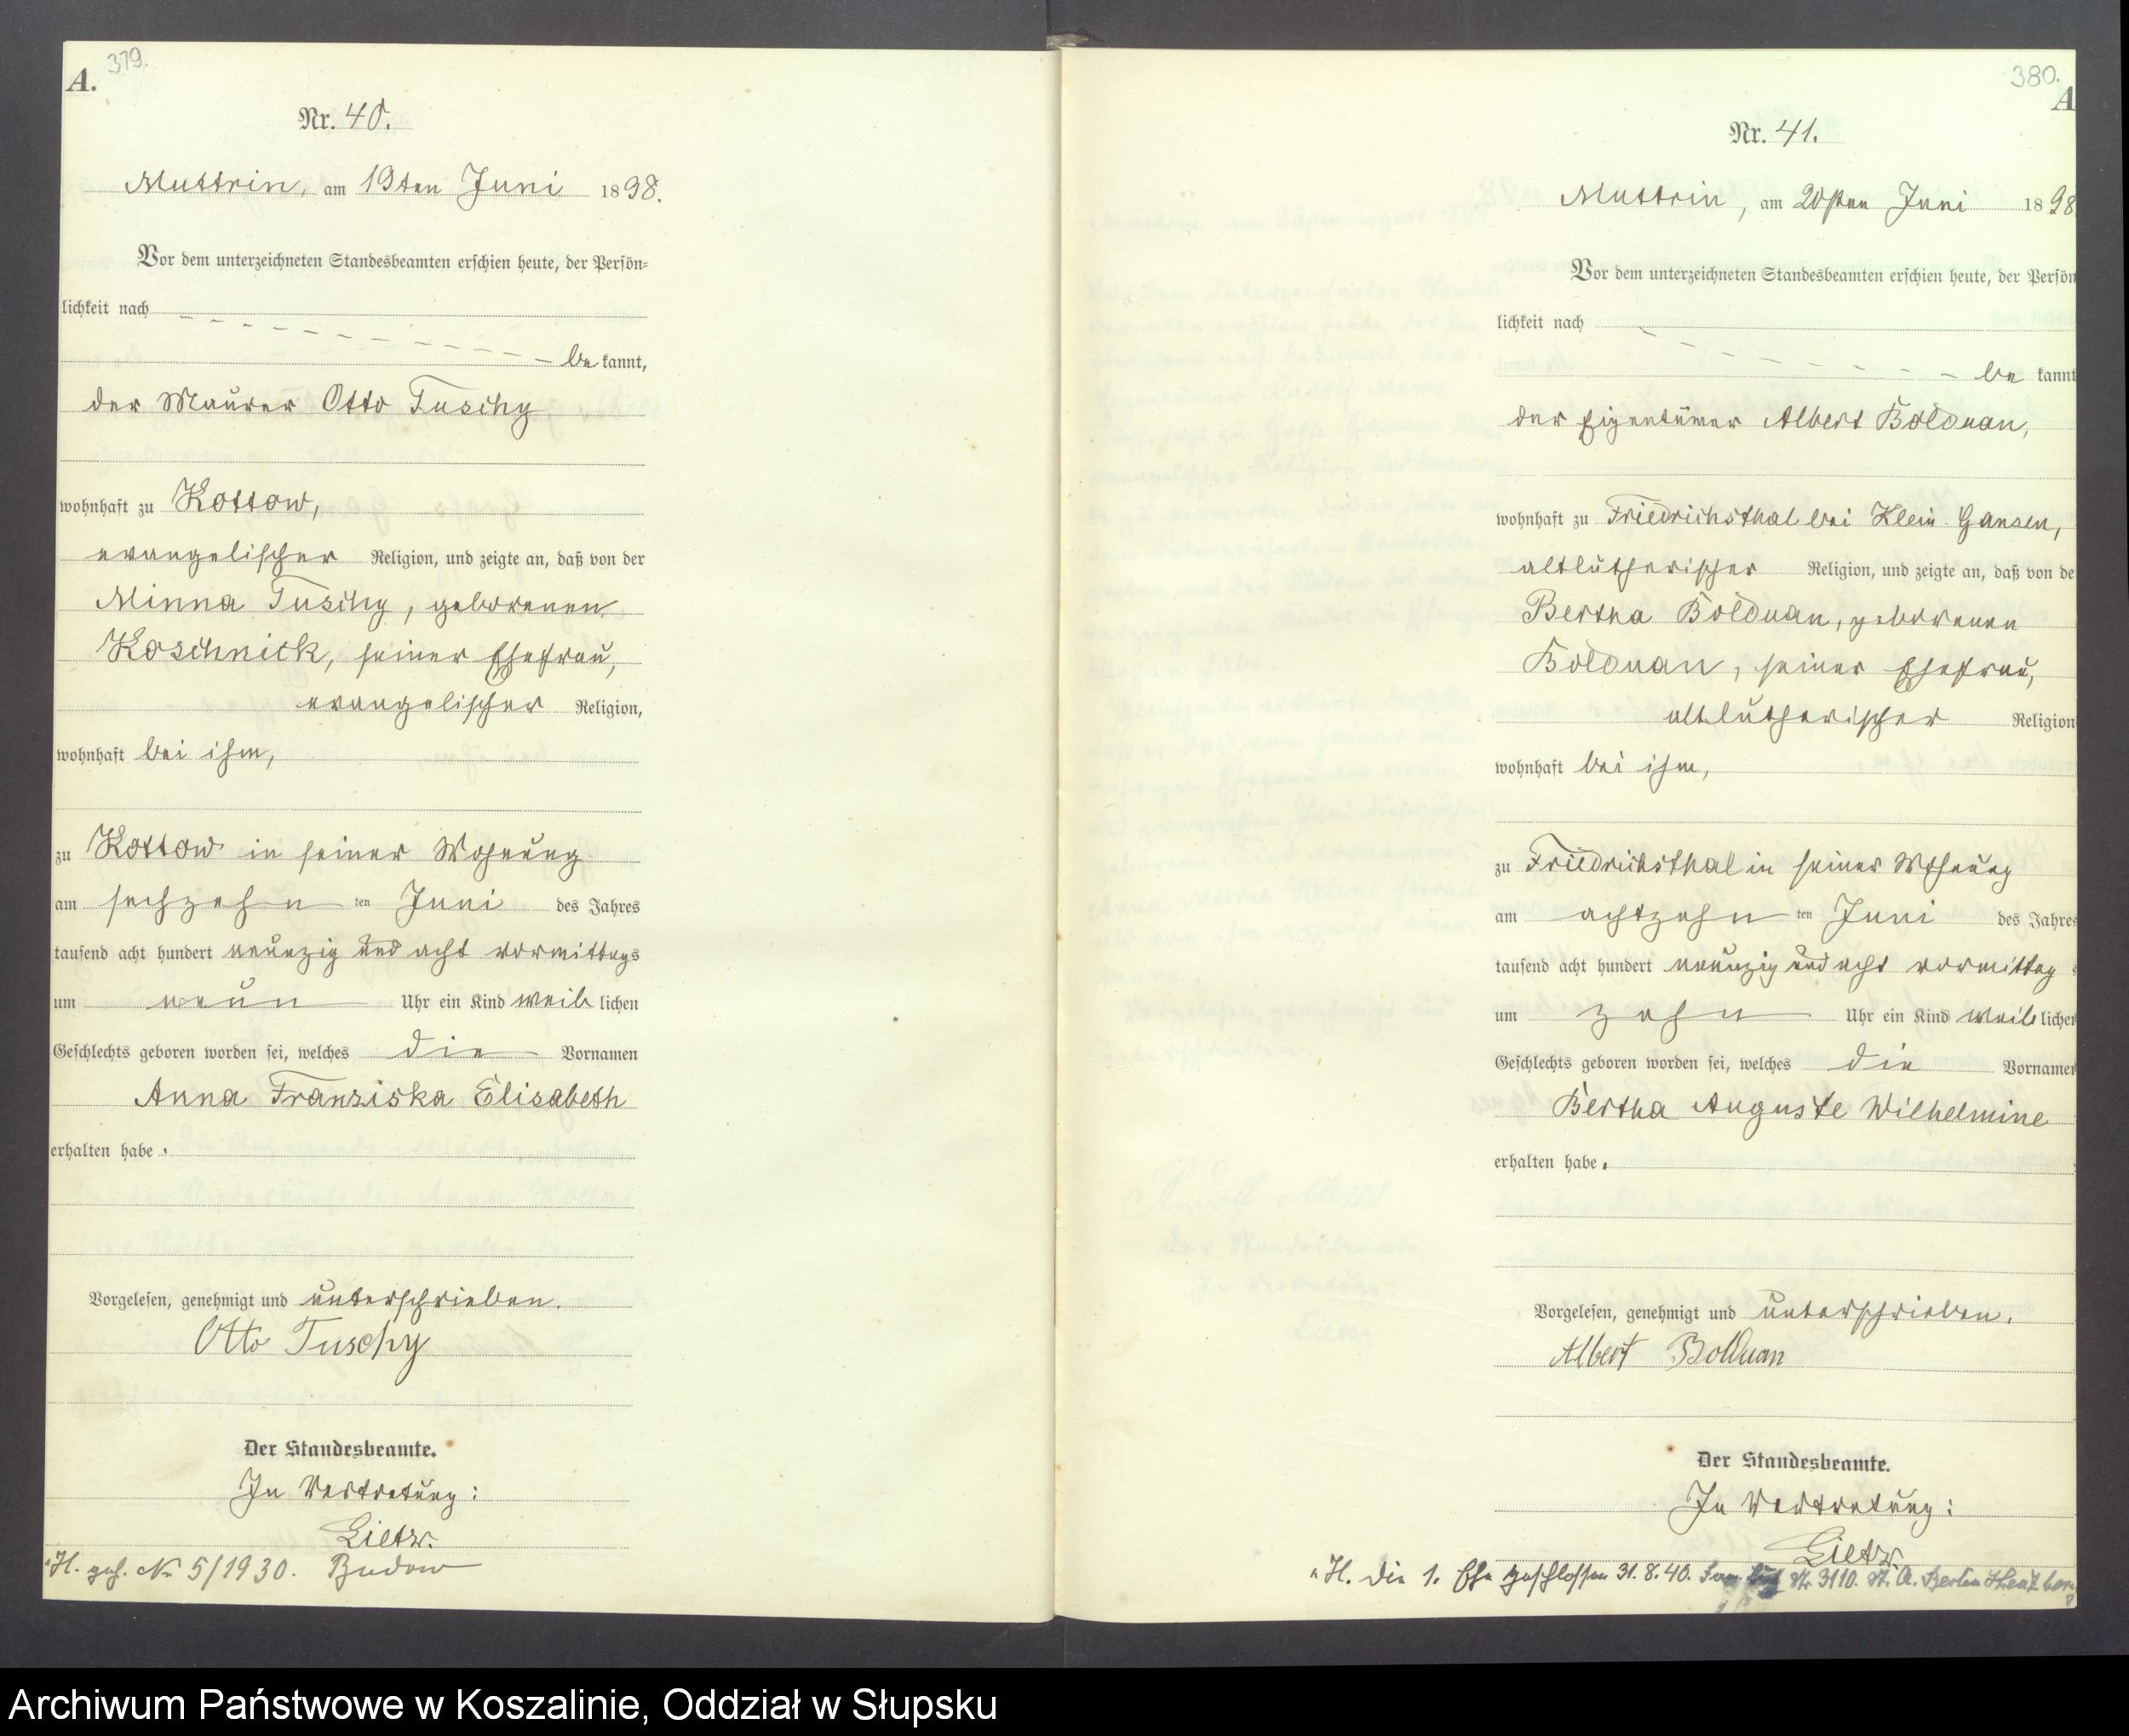 A. 379.
Nr. 40.
Muttrin, am 19ten Juni 1898.
Vor dem unterzeichneten Standesbeamten erschien heute, der Persön-
lichkeit nach
be kannt,
der Maurer Otto Tuschy
wohnhaft zu Kottow,
evangelischer Religion, und zeigte an, daß von der
Minna Tuschy, geborenen
Koschnick, seiner Ehefrau,
evangelischer Religion,
wohnhaft bei ihm,
zu Kottow in seiner Wohnung
am sechzehn ten Juni des Jahres
tausend acht hundert neunzig und acht vormittags
um neun Uhr ein Kind weib lichen
Geschlechts geboren worden sei, welches die Vornamen
Anna Franziska Elisabeth
erhalten habe.
Vorgelesen, genehmigt und unterschrieben.
Otto Tuschy
Der Standesbeamte.
In Vertretung:
Lietz.
H. geh. No 5/1930. Budow
380.
A
Nr. 41.
Muttrin, am 20sten Juni 1898
Vor dem unterzeichneten Standesbeamten erschien heute, der Persön
lichkeit nach
be kannt
der Eigentümer Albert Bolduan,
wohnhaft zu Friedrichsthal bei Klein Gansen,
altlutherischer Religion, und zeigte an, daß von de
Bertha Bolduan, geborenen
Bolduan, seiner Ehefrau,
altlutherischer Religion
wohnhaft bei ihm,
zu Friedrichsthal in seiner Wohnung
am achtzehn ten Juni des Jahres
tausend acht hundert neunzig und acht vormittag s
um zehn Uhr ein Kind weib lichen
Geschlechts geboren worden sei, welches die Vornamen
Bertha Auguste Wilhelmine
erhalten habe.
Vorgelesen, genehmigt und unterschrieben.
Albert Bolduan
Der Standesbeamte.
In Vertretung:
Lietz.
H. Die 1. Ehe geschlossen 31.8.40. Nr. 3110. St. A. Berlin
Archiwum Państwowe w Koszalinie, Oddział w Słupsku